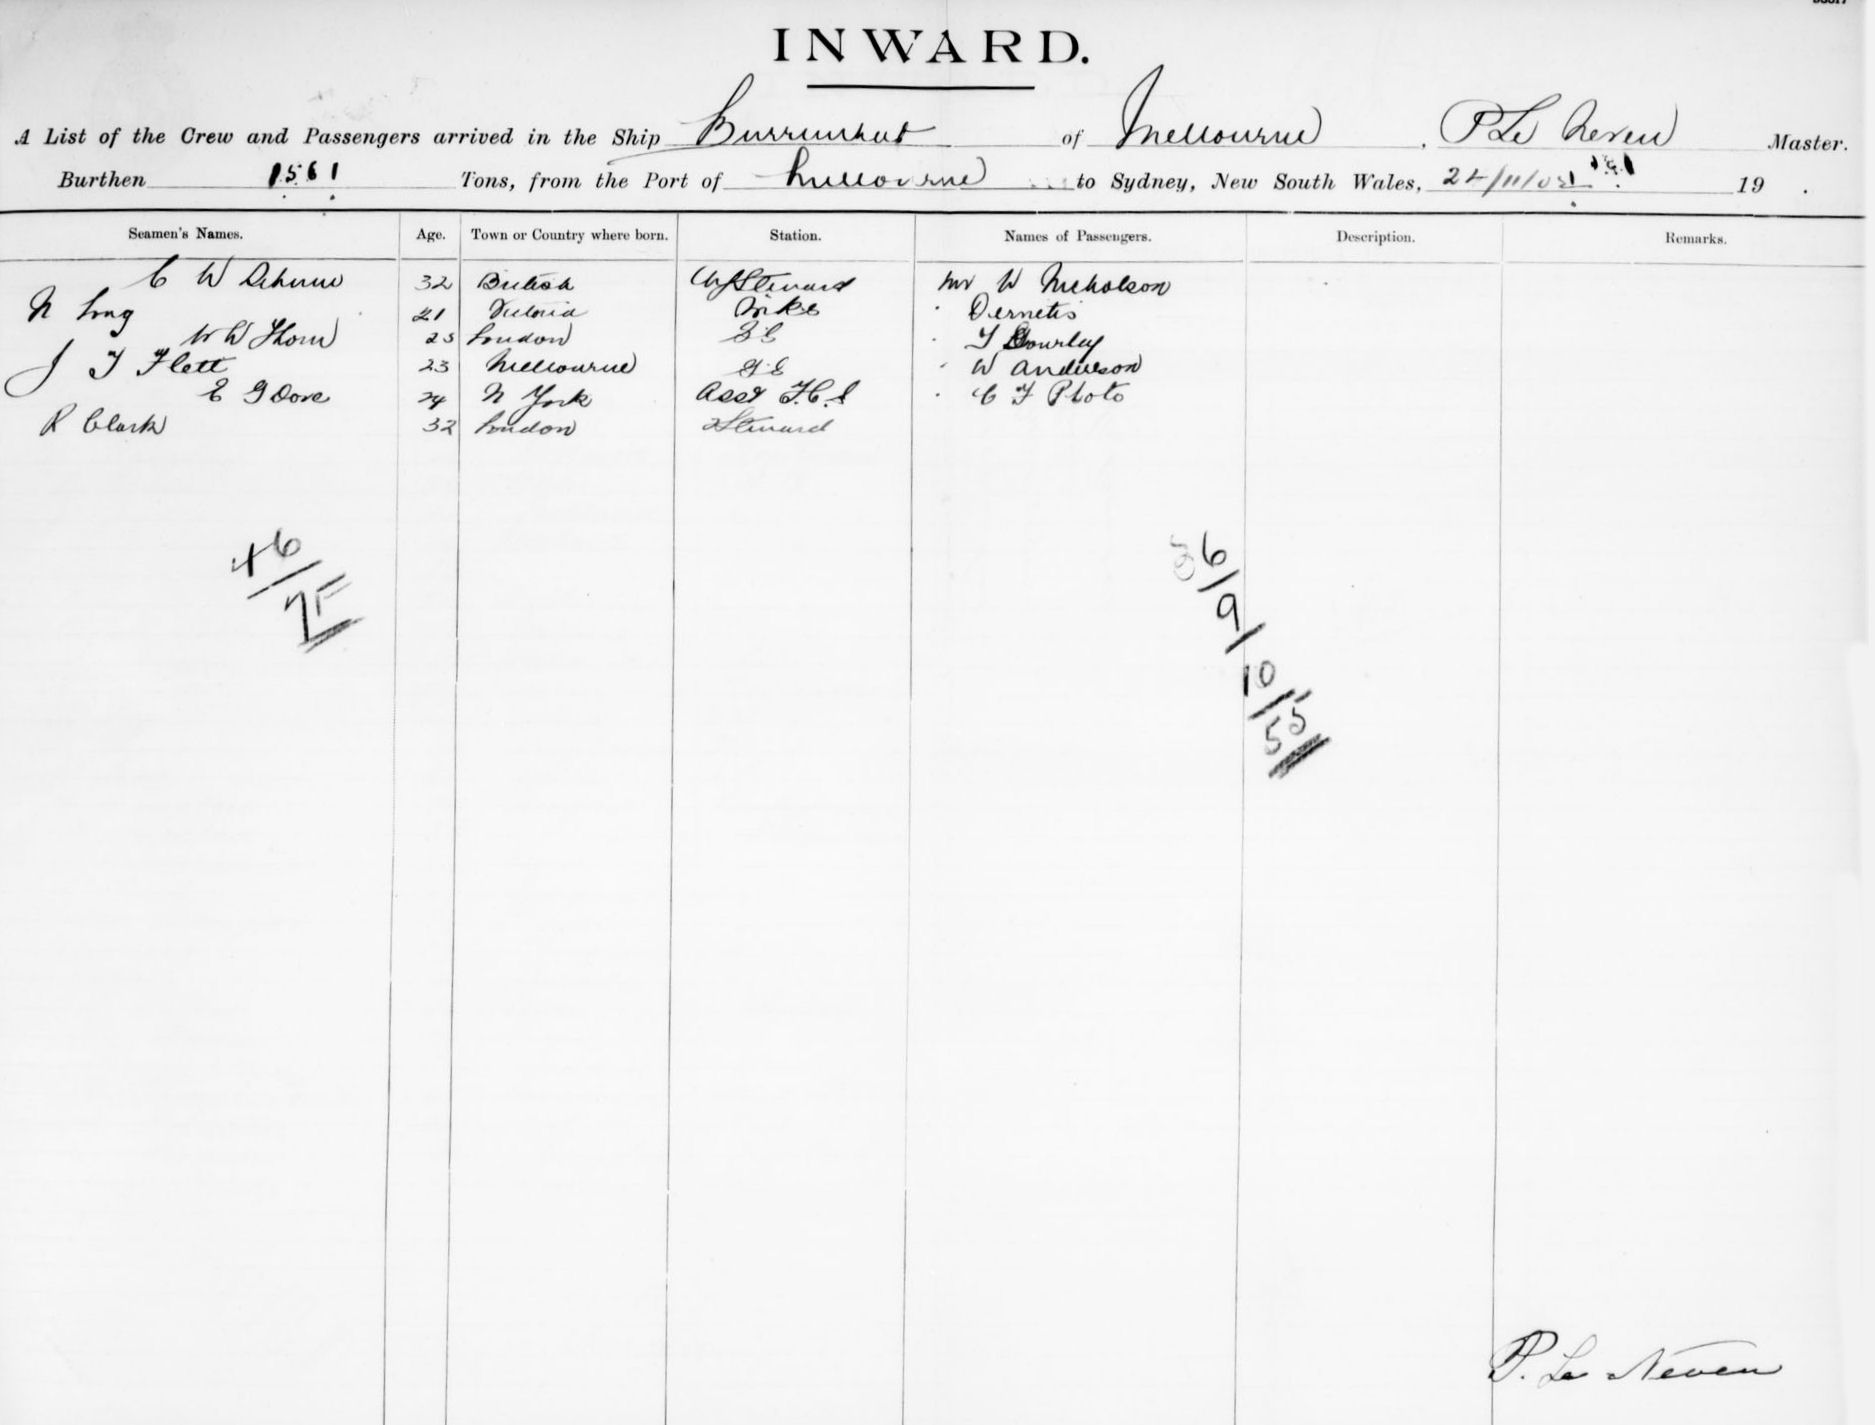 INWARD.
A List of the Crew and Passengers arrived in the Ship Burrumbeet of Melbourne, P Le Neven Master.
Burthen 1561 Tons, from the Port of Melbourne to Sydney, New South Wales, 19 .
Seamen's Names. Age. Town or Country where born. Station. Names of Passengers. Description. Remarks.
C W 32 British Steward Mr W Nicholson
N Long 21 Victoria
W W Thorn 25 London T Gourley
J T Flett 23 Melbourne W Anderson
E G Dove 24 N York Asst C F
R Clark 32 London Steward
46/
36/9/
10/
55
P. Le Neven